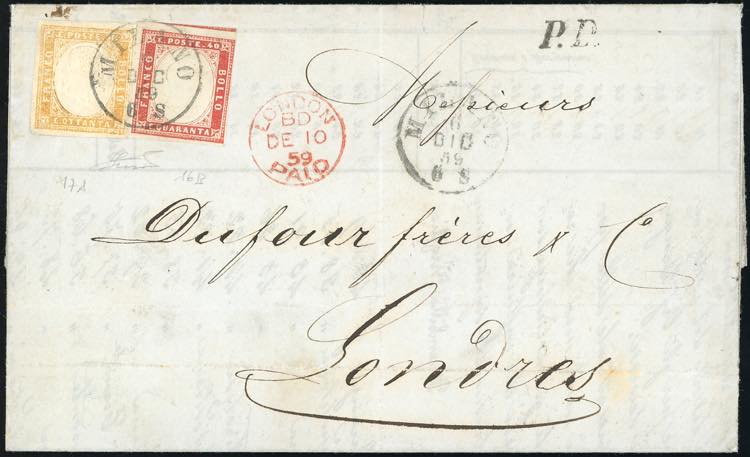 P.D.
C. POSTE. 80
FRANCO
BOLLO
C. OTTANTA
C. POSTE. 40
FRANCO
BOLLO
C. QUARANTA
MILANO
DIC
59
6 S
LONDON
BD
DE 10
59
PAID
MILANO
6
DIC
59
6 S
Messieurs
17A
16B
Dufour frères & C.
Londres